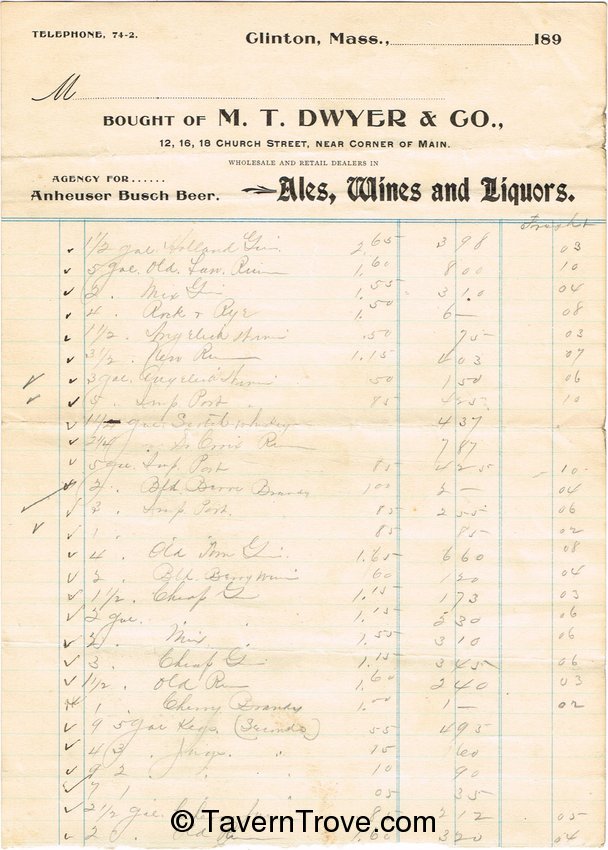 TELEPHONE, 74-2.
Clinton, Mass., 189
M
BOUGHT OF M. T. DWYER & CO.,
12, 16, 18 CHURCH STREET, NEAR CORNER OF MAIN.
WHOLESALE AND RETAIL DEALERS IN
AGENCY FOR......
Anheuser Busch Beer.
Ales, Wines and Liquors.
Freight
1 1/2 gal. Holland Gin 2.65 3 98 03
5 gal. Old Rum 1.60 8 00 10
2 . Mix Gin 1.55 3 10 04
4 . Rock & Rye 1.50 6 — 08
1 1/2 . .50 75 03
3 1/2 . New Rum 1.15 4 03 07
3 gal. 50 1 50 06
5 . Imp Port 85 4 25 10
1 1/4 gal. 4 37
2 1/4 . Rum 7 87
5 gal. Imp. Port 85 4 25 10
2 . Brandy 100 2 — 04
3 . Imp Port. 85 2 55 06
1 . 85 85 02
4 . Old Tom Gin. 1.65 6 60 08
2 . Bld. Berry 60 1 20 04
1 1/2 . Cheap G 1.15 1 73 03
2 gal. . . 1.15 2 30 06
2 . Mix . 1.55 3 10 06
3 . Cheap G 1.15 3 45 06
1 1/2 . Old Rum 1.60 2 40 03
1 . Cherry Brandy 1.00 1 — 02
9 5 gal Kegs 55 4 95
4 3 . Jugs . 15 60
9 2 . . 10 90
7 1 . 05 35
2 1/2 gal. 85 2 12 05
2 . Old Rum 1.60 3 20 04
© TavernTrove.com